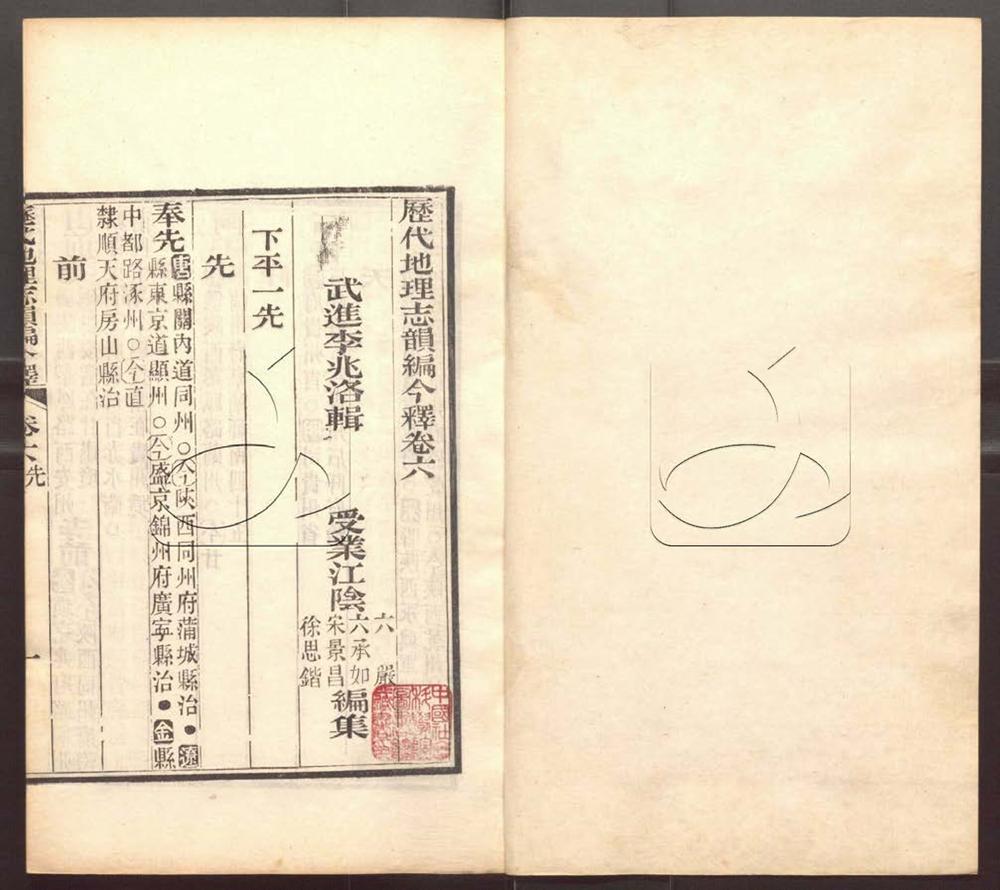 歷代地理志韻編今釋卷六
武進李兆洛輯
受業江陰
六嚴
六承如
宋景昌
徐思鍇
編集
下平一先
先
奉先
唐縣關內道同州○今陝西同州府蒲城縣治●遼
縣東京道顯州○今盛京錦州府廣寧縣治●金縣
中都路涿州○今直
隸順天府房山縣治
前
歷代地理志韻編今釋
卷六先
一